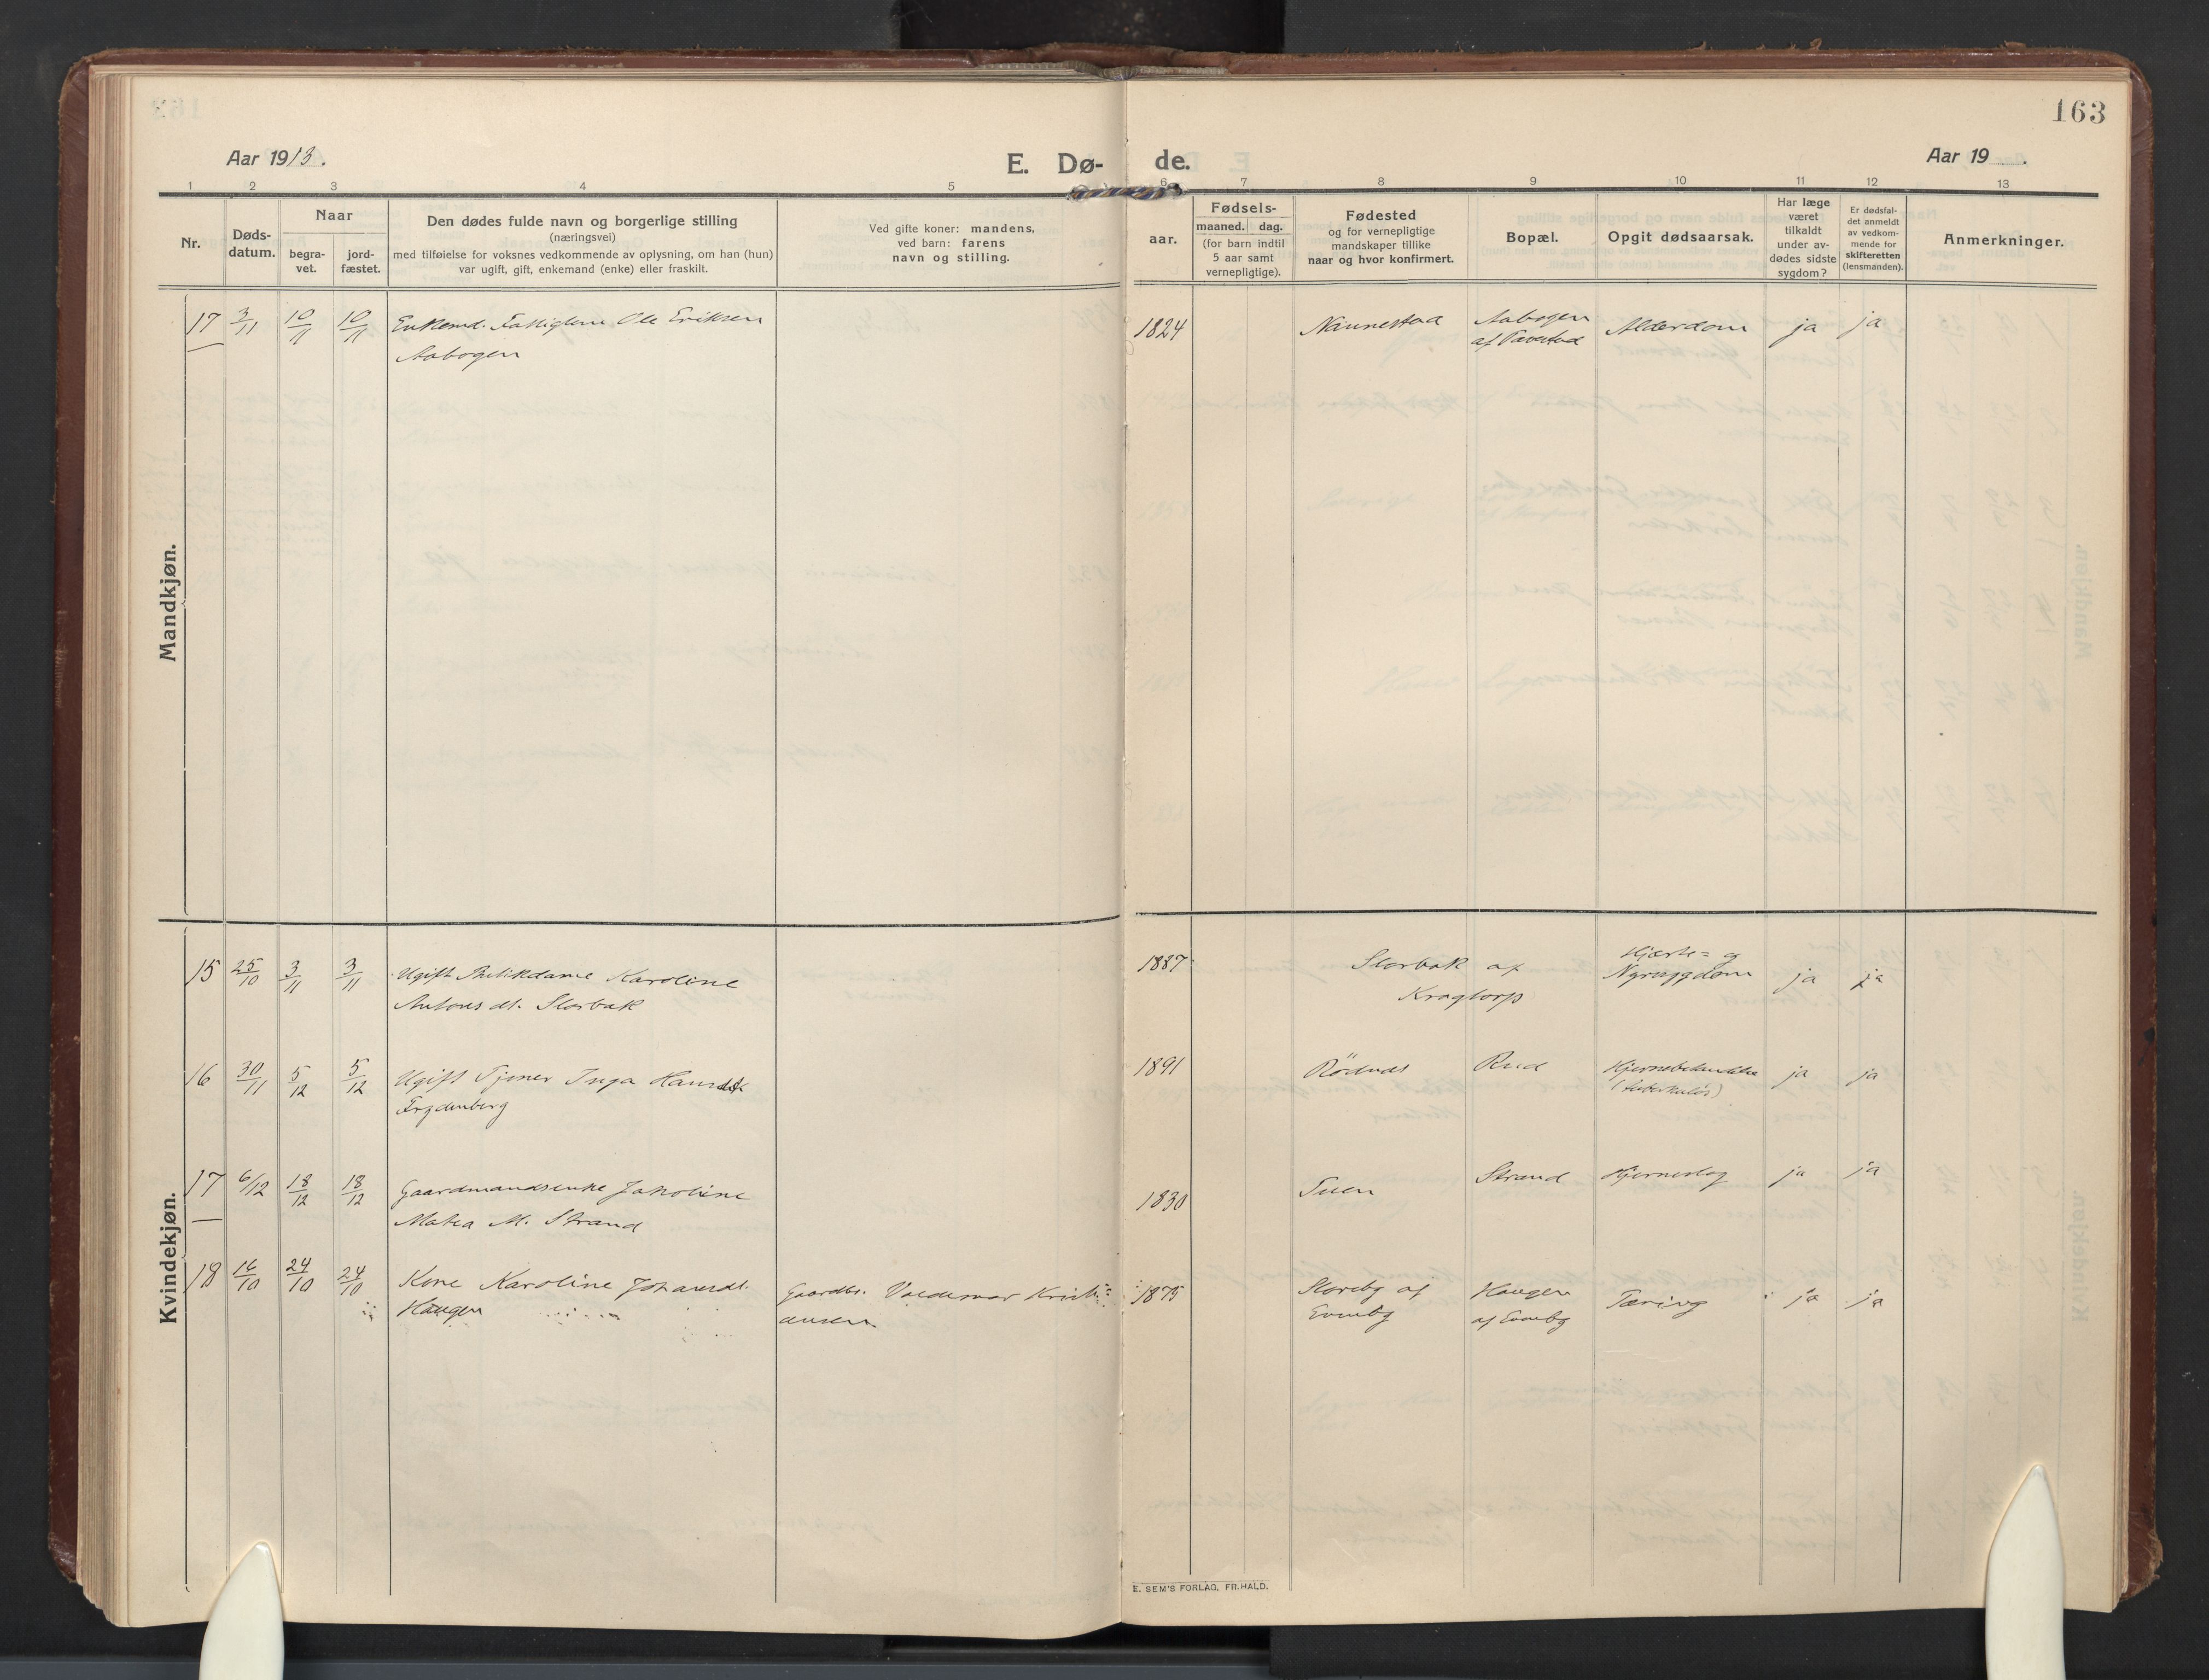 163
Aar 1913.
E. Dø-
de.
Aar 19
1 2 3 4 5 6 7 8 9 10 11 12 13
Nr.
Døds-
datum.
Naar
begra-
vet.
jord-
fæstet.
Den dødes fulde navn og borgerlige stilling
(næringsvei)
med tilføielse for voksnes vedkommende av oplysning, om han (hun)
var ugift, gift, enkemand (enke) eller fraskilt.
Ved gifte koner: mandens,
ved barn: farens
navn og stilling.
aar.
Fødsels-
maaned. dag.
(for barn indtil
5 aar samt
vernepligtige).
Fødested
og for vernepligtige
mandskaper tillike
naar og hvor konfirmert.
Bopæl.
Opgit dødsaarsak.
Har læge
været
tilkaldt
under av-
dødes sidste
sygdom?
Er dødsfal-
det anmeldt
av vedkom-
mende for
skifteretten
(lensmanden).
Anmerkninger.
Mandkjøn.
17 3/11 10/11 10/11 Enkemd. Fattiglem Ole Eriksen
Aabogen
1824 Nannestad Aabogen
af Tavestad
Alderdom ja ja
Kvindekjøn.
15 25/10 3/11 3/11 Ugift Butikdame Karoline
Antonsdt. Storbak
1887 Storbak af
Kragtorp
Hjerte= og
ja ja
16 30/11 5/12 5/12 Ugift Tjener Inga Hansdt
Frydenberg
1891 Rödnæs Rud
(tuberkuløs)
ja ja
17 6/12 18/12 18/12 Gaardmandsenke Jakobine
Matea M. Strand
1830 Tuen Strand Hjerneslag ja ja
18 16/10 24/10 24/10 Kone Karoline Johansdt.
Haugen
Gaardbr. Valdemar Kristi=
ansen.
1875 Storeby af
Evenby
Haugen
af Evenby
Tæring ja ja
E. SEM'S FORLAG, FR.HALD.